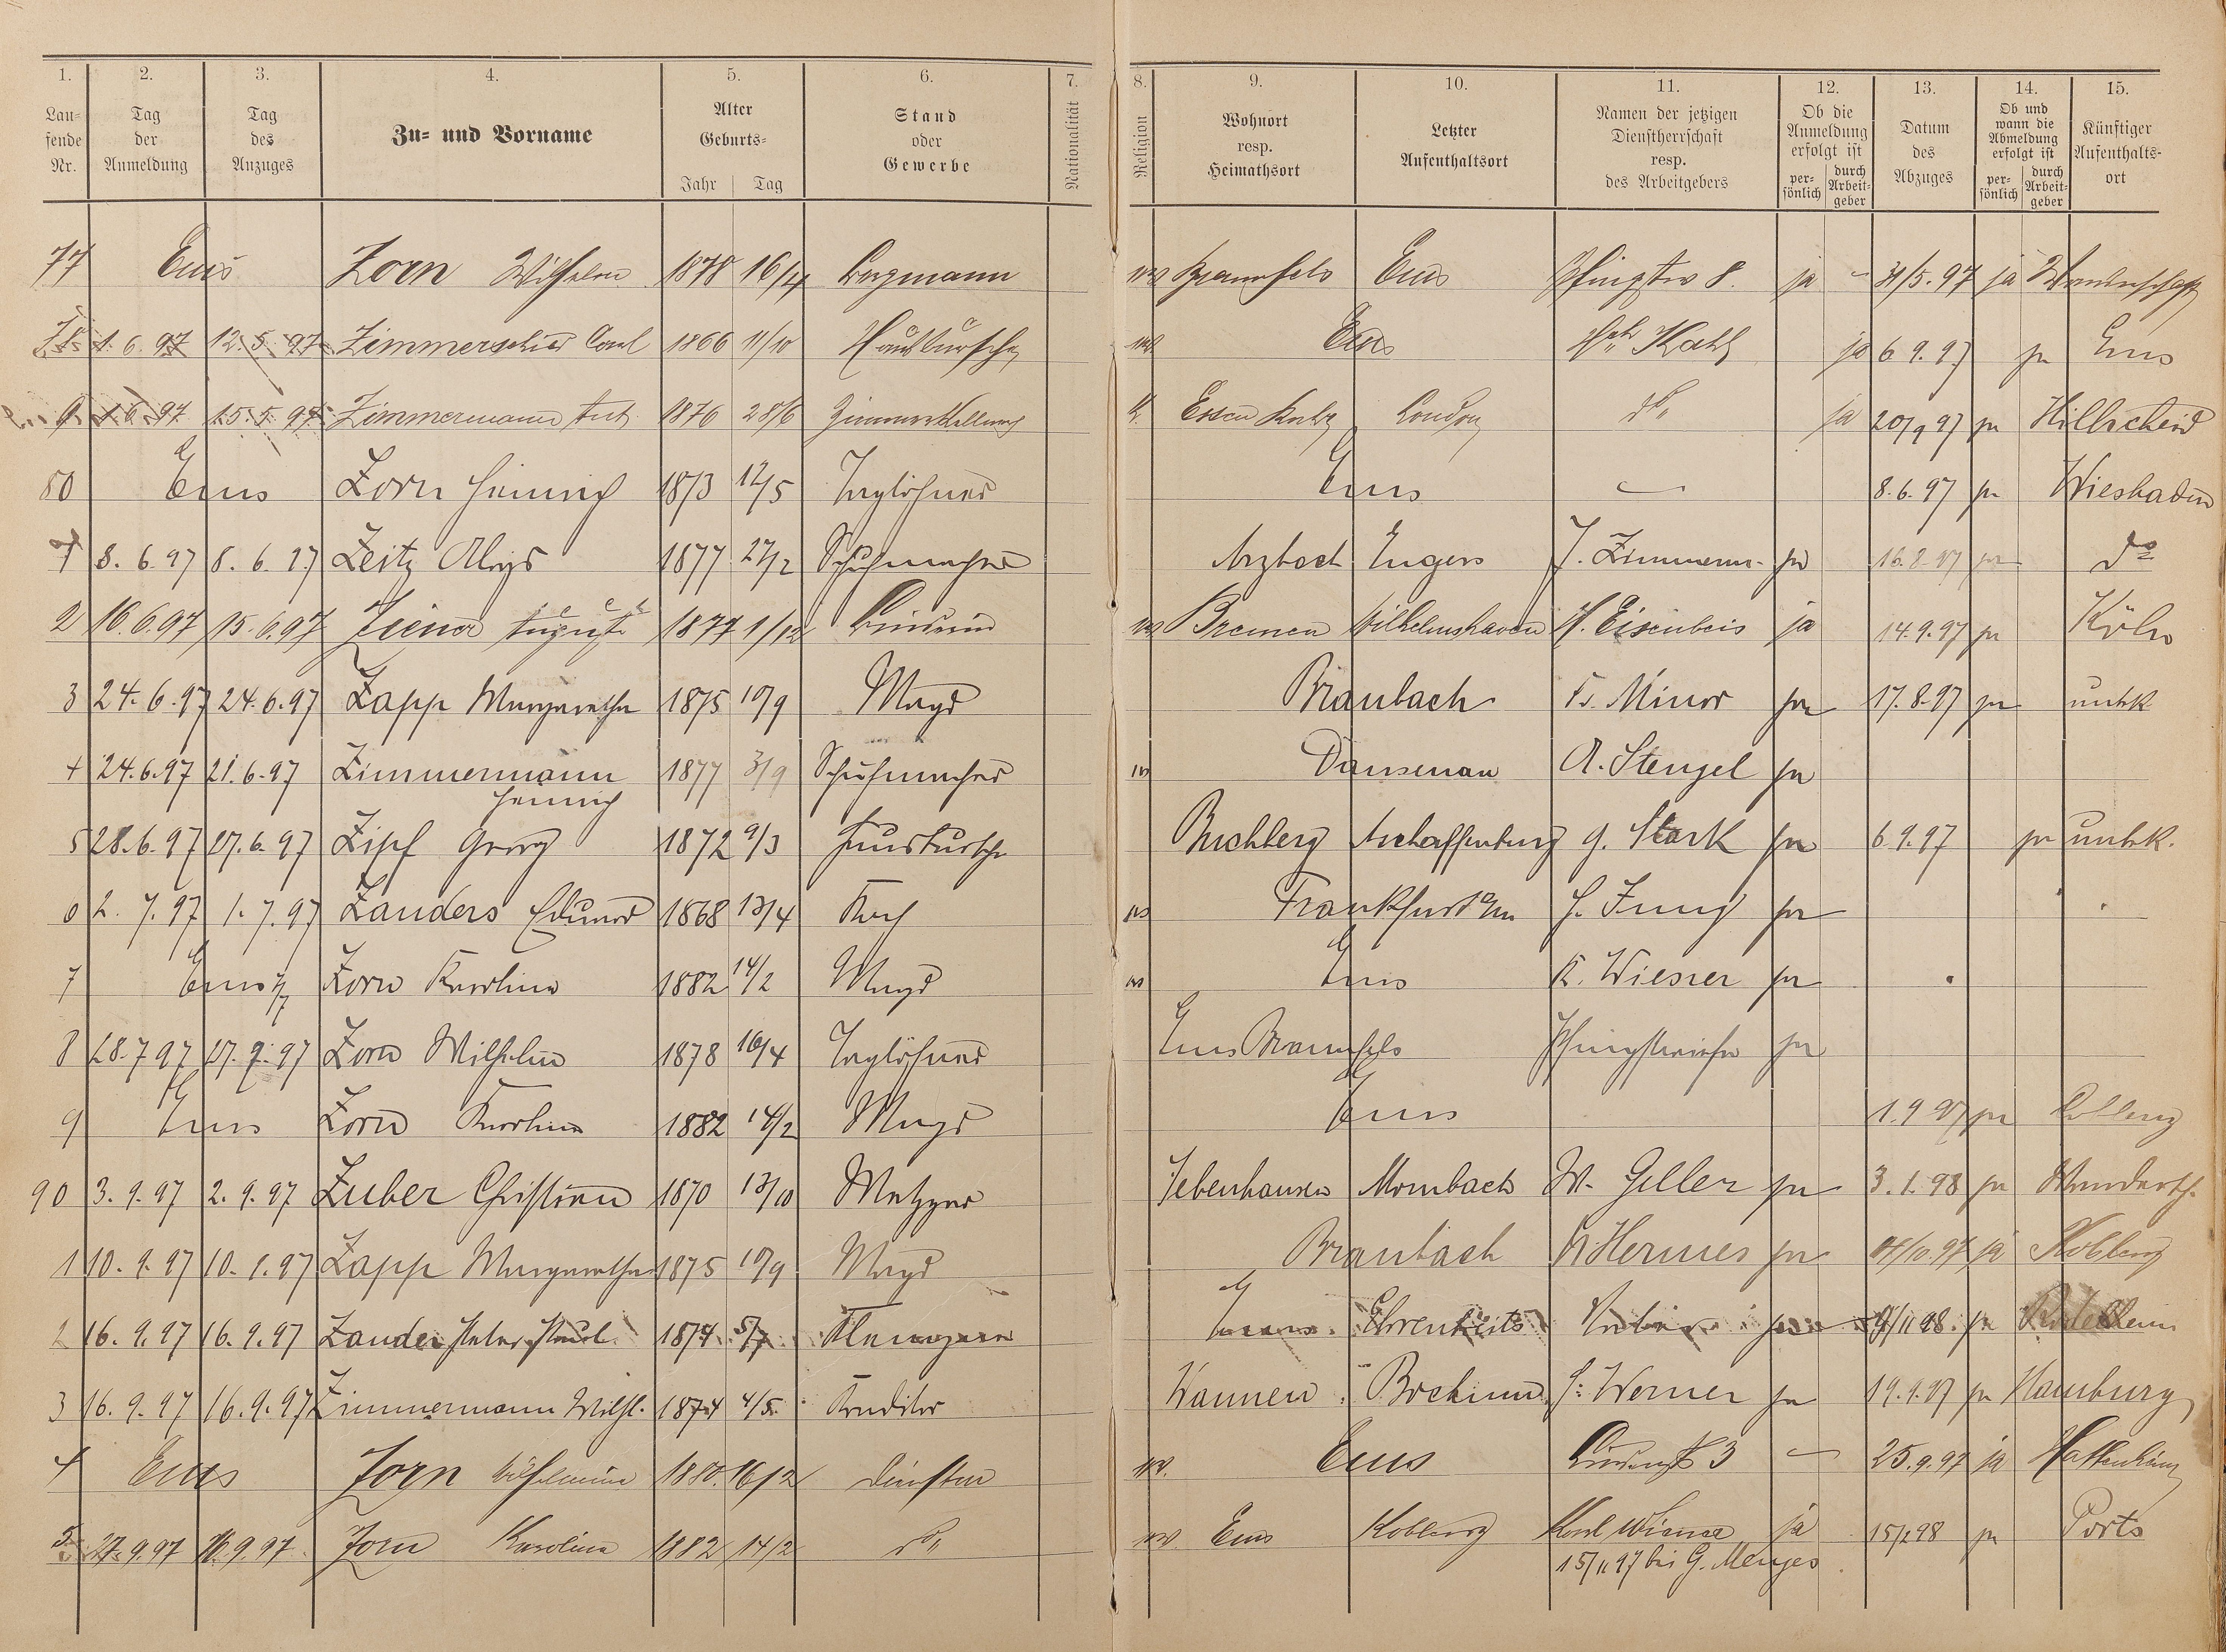 1. 2. 3. 4. 5. 6. 7. 8. 9. 10. 11. 12. 13. 14. 15.
Lau-
fende
Nr.
Tag
der
Anmeldung
Tag
des
Anzuges
Zu- und Vorname
Alter
Geburts-
Jahr Tag
Stand
oder
Gewerbe
Nationalität
Religion
Wohnort
resp.
Heimathsort
Letzter
Aufenthaltsort
Namen der jetzigen
Dienstherrschaft
resp.
des Arbeitgebers
Ob die
Anmeldung
erfolgt ist
per-
sönlich
durch
Arbeit-
geber
Datum
des
Abzuges
Ob und
wann die
Abmeldung
erfolgt ist
per-
sönlich
durch
Arbeit-
geber
Künftiger
Aufenthalts-
ort
77 Ems Zorn Wilhelm 1878 16/4 Bergmann Braunfels Ems 8. ja - 31/5.97 ja Wanderschaft
1.6.97 12.5.97 Carl 1866 11/10 Hausbursche Ems Kahl ja 6 9.97 ja Ems
9 1.6.97 15.5.97 Zimmermann Aut. 1876 28/6 London do ja 20/9 97 ja Hillscheid
80 Ems Zorn Heinrich 1873 12/5 Taglöhner Ems - 8.6.97 ja Wiesbaden
1 8.6.97 8.6.97 Zeitz Aloys 1877 27/2 Schuhmacher Arzbach Engers J. Zimmerm. ja 16.8.97 ja do
2 16.6.97 15.6.97 August 1877 1/12 Bremen Wilhelmshaven H. Eisenbeis ja 14.9.97 ja Köln
3 24.6.97 24.6.97 Zapp Margaretha 1875 10/9 Magd Braubach Fr. Minor ja 17.8.97 ja unbk
4 24.6.97 21.6.97 Zimmermann 1877 3/9 Schuhmacher Dausenau A. Stengel ja
Heinrich
5 28.6.97 27.6.97 Zipf Georg 1872 9/3 Hausbursche Buchberg Aschaffenburg G. Stark ja 6 9.97 ja unbk.
6 2.7.97 1.7.97 Zanders Eduard 1868 13/4 Koch Frankfurt a/m H. Jung ja
7 Ems Zorn Karolina 1882 14/2 Magd Ems K. Wiesner ja
8 28.7 97 27.7.97 Zorn Wilhelm 1878 16/4 Taglöhner Ems Braunfels ja
9 Ems Zorn Karolina 1882 14/2 Magd Ems 1.9 97 ja Coblenz
90 3.9.97 2.9.97 Zuber Christian 1870 13/10 Metzger Jebenhausen Mombach W. Geller ja 3.1.98 ja Wandersch.
1 10.9.97 10.9.97 Zapp Margaretha 1875 10/9 Magd Braubach Fr. Hermes ja ja Koblenz
2 16.9.97 16.9.97 Zander Peter Paul 1874 5/7 Ehrenbreits ja
3 16.9.97 16.9.97 Zimmermann Wilh. 1874 4/5 Konditor Wannen Bochum Werner ja 19.9.97 ja Hamburg
4 Ems Zorn Wilhelmine 1880 16/2 Ems 3 - 25.9.97 ja Hattenheim
5 27.9.97 Zorn Karolina 1882 14/2 do Ems Koblenz Karl ja 15/2 98 ja Ports
15/11 97 bei G. Menges